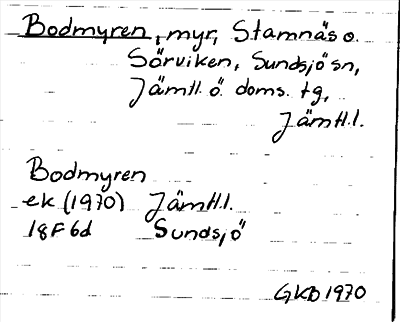 Bodmyren, myr, Stamnäs o.
Sörviken, Sundsjö sn,
Jämtl. ö. doms. tg,
Jämtl.
Bodmyren
ek (1970) Jämtl.
18F 6d Sundsjö
GKB 1970